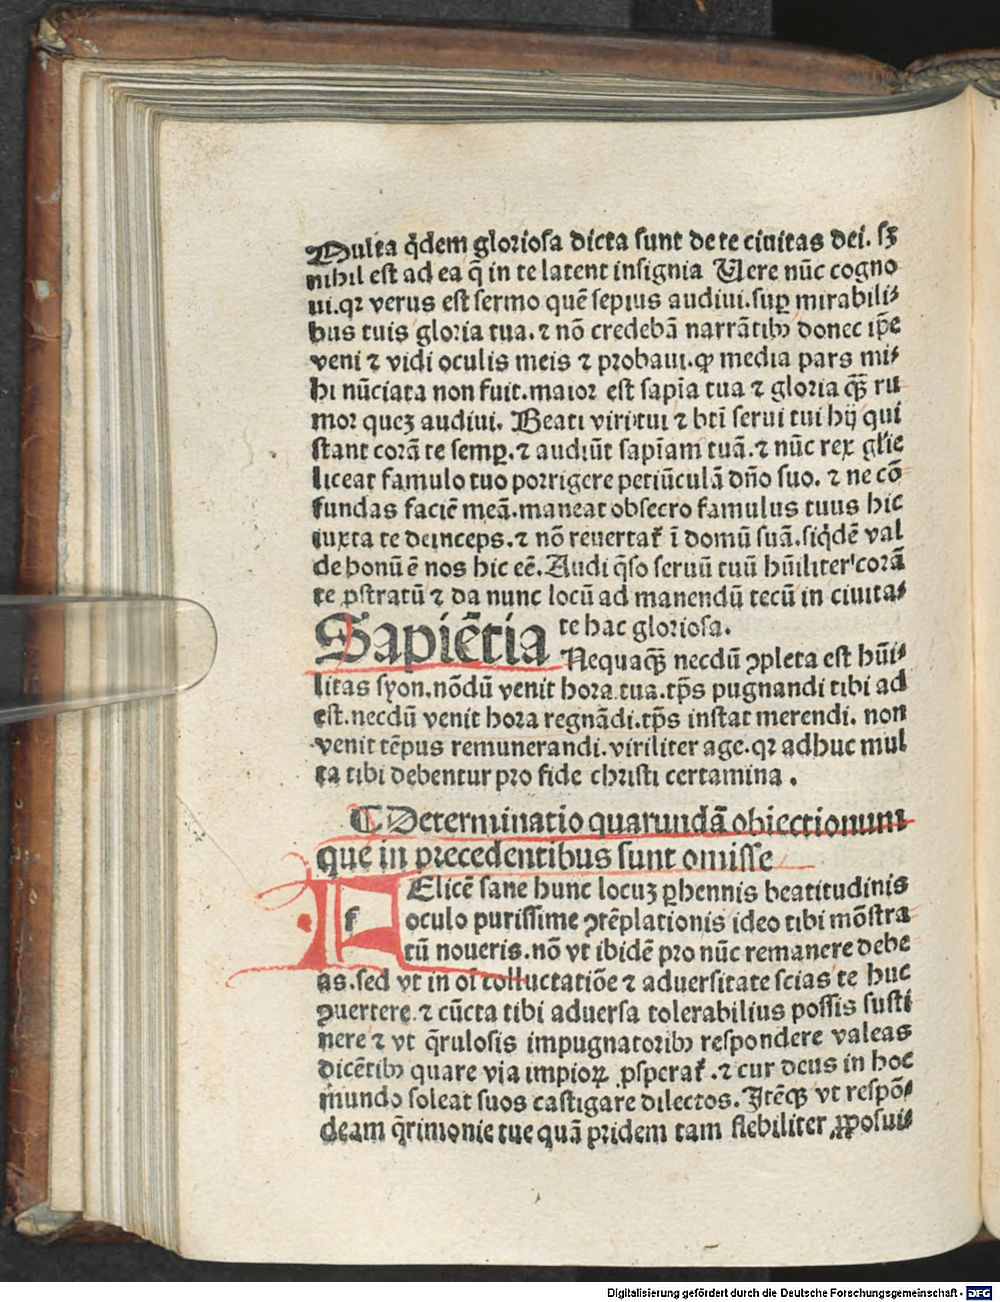 Multa q̄dem gloriosa dicta sunt de te ciuitas dei. sꝫ
nihil est ad ea q̄ in te latent insignia Vere nūc cogno
ui. qꝛ verus est sermo quē sepius audiui. suꝑ mirabili⸗
bus tuis gloria tua. ⁊ nō credebā narrātibꝫ donec ip̄e
veni ⁊ vidi oculis meis ⁊ probaui. ꝙ media pars mi⸗
hi nūciata non fuit. maior est sapīa tua ⁊ gloria qꝫ̄ ru
mor quez audiui. Beati viri tui ⁊ bt̄i serui tui hij qui
stant corā te semꝑ. ⁊ audiūt sapīam tuā. ⁊ nūc rex gl̄ie
liceat famulo tuo porrigere petiūculā dn̄o suo. ⁊ ne cō
fundas faciē meā. maneat obsecro famulus tuus hic
iuxta te deinceps. ⁊ nō reuertat̄ ī domū suā. siq̄dē val
de bonū ē nos hic eē. Audi q̄so seruū tuū hūiliter corā
te ꝓstratū ⁊ da nunc locū ad manendū tecū in ciuita⸗
te hac gloriosa.
Sapiētia Nequaqꝫ̄ necdū ꝯpleta est hūi⸗
litas syon. nōdū venit hora tua. tp̄s pugnandi tibi ad
est. necdū venit hora regnādi. tp̄s instat merendi. non
venit tēpus remunerandi. viriliter age. qꝛ adhuc mul
ta tibi debentur pro fide christi certamina.
¶ Determinatio quarundā obiectionum
que in precedentibus sunt omisse
fElicē sane hunc locuz ꝑhennis beatitudinis
oculo purissime ꝯtēplationis ideo tibi mōstra
tū noueris. nō vt ibidē pro nūc remanere debe
as. sed vt in oī colluctatiōe ⁊ aduersitate scias te huc
ꝯuertere. ⁊ cūcta tibi aduersa tolerabilius possis susti
nere ⁊ vt q̄rulosis impugnatoribꝫ respondere valeas
dicētibꝫ quare via impioꝝ ꝓsperat̄. ⁊ cur deus in hoc
mundo soleat suos castigare dilectos. Itēqꝫ vt respō⸗
deam q̄rimonie tue quā pridem tam flebiliter ꝓposui⸗
Digitalisierung gefördert durch die Deutsche Forschungsgemeinschaft - DFG